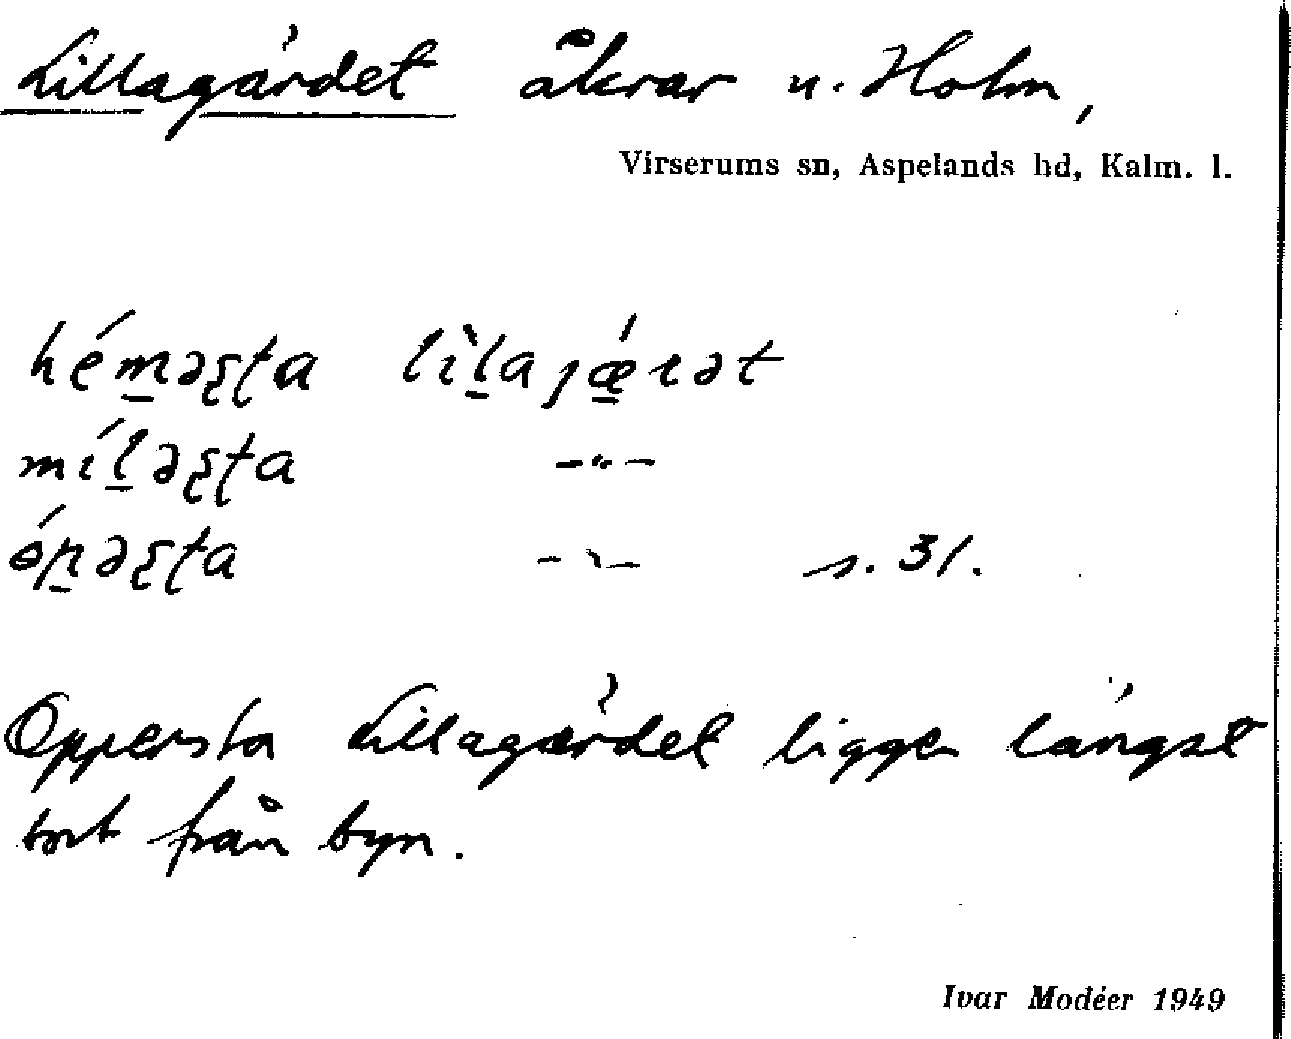 Lillagärdet åkrar u. Holm,
Virserums sn, Aspelands hd, Kalm. l.
hém̲əʂʈa lìl̲aȷǽ̲ɩət
míl̲əʂʈa -"-
óp̲əʂʈa -"- s. 31.
Oppersta Lillagärdet ligger längst
bort från byn.
Ivar Modéer 1949